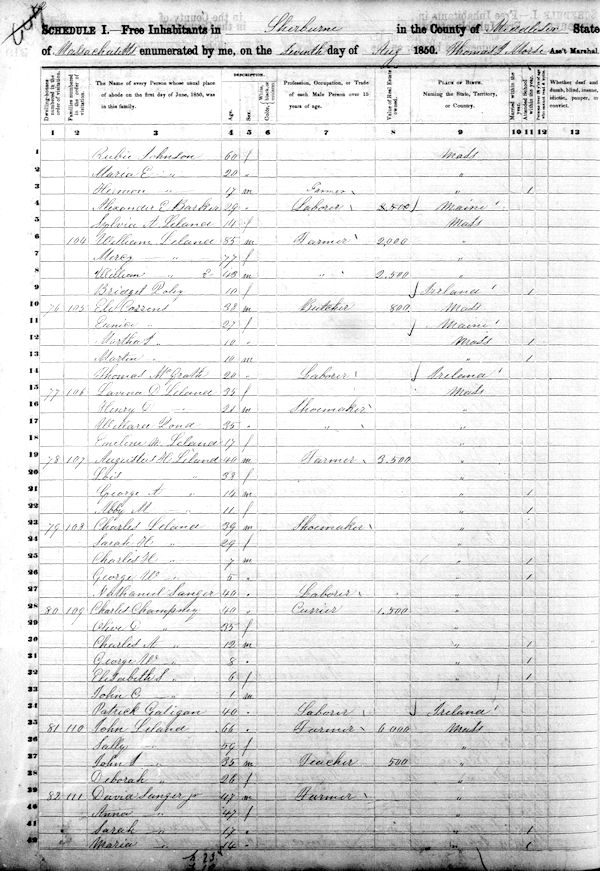 SCHEDULE I.—Free Inhabitants in Sherburne in the County of Middlesex State
of Massachusetts enumerated by me, on the Seventh day of Aug 1850. Thomas S. Morse Ass't Marshal.
Dwelling-houses numbered in the order of visitation. Families numbered in the order of visitation. The Name of every Person whose usual place of abode on the first day of June, 1850, was in this family. DESCRIPTION. Age. Sex. Color, White, black, or mulatto. Profession, Occupation, or Trade of each Male Person over 15 years of age. Value of Real Estate owned. PLACE OF BIRTH. Naming the State, Territory, or Country. Married within the year. Attended School within the year. Whether deaf and dumb, blind, insane, idiotic, pauper, or convict.
1 2 3 4 5 6 7 8 9 10 11 12 13
1 Rubie Johnson 60 f Mass
2 Maria E " 20 " "
3 Hermon " 17 m Farmer " 1
4 Alexander E Barker 29 " Laborer 2,500 Maine
5 Sylvia A. Leland 14 f Mass
6 104 William Leland 85 m Farmer 2,000 "
7 Mercy " 77 f "
8 William " E 42 m " 2,500 "
9 Bridget Foley 10 f Ireland 1
10 76 105 Eli 38 m Butcher 800 Mass
11 Eunice " 27 f Maine
12 Martha " 10 " Mass 1
13 Martin " 10 m " 1
14 Thomas McGrath 20 " Laborer Ireland
15 77 106 Lavina D Leland 35 f Mass
16 Henry " 21 m Shoemaker "
17 Willard 35 " " "
18 Emeline M. Leland 17 f "
19 78 107 Augustus H Leland 40 m Farmer 3,500 "
20 Lois " 38 f "
21 George A " 14 m " 1
22 Abby M " 11 f " 1
23 79 108 Charles Leland 39 m Shoemaker "
24 Sarah H. " 29 f "
25 Charles H. " 7 m " 1
26 George W. " 5 " " 1
27 Nathaniel Sanger 40 " Laborer "
28 80 109 Charles Champney 40 " Currier 1,500 "
29 Olive D " 35 f "
30 Charles A. " 12 m " 1
31 George W. " 8 " " 1
32 Elizabeth S. " 6 f " 1
33 John O " 1 m "
34 Patrick Galigan 40 " Laborer Ireland
35 81 110 John Leland 66 " Farmer 6,000 Mass
36 Sally " 59 f "
37 John " 35 m Teacher 500 "
38 Deborah " 26 f "
39 82 111 David Sanger jr 47 m Farmer "
40 Anna " 47 f "
41 Sarah " 17 " " 1
42 Maria " 14 " " 1